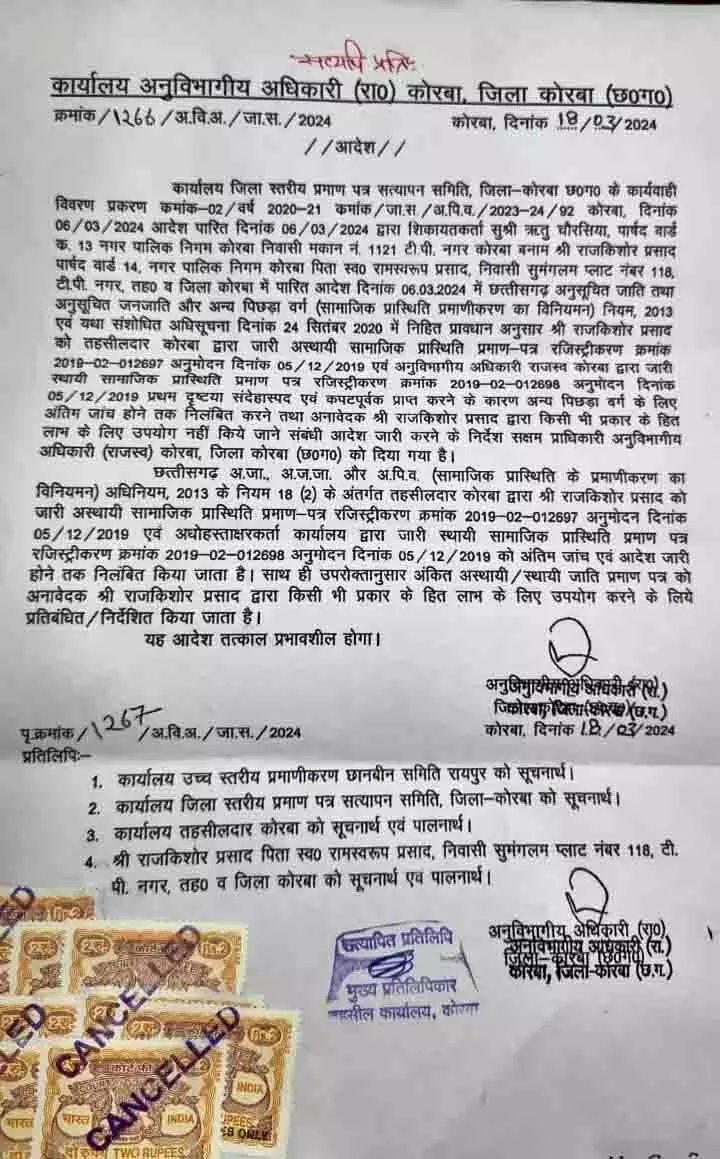 सत्यापि प्रतिः
कार्यालय अनुविभागीय अधिकारी (रा0) कोरबा, जिला कोरबा (छ0ग0)
क्रमांक/1266/अ.वि.अ./जा.स./2024 कोरबा, दिनांक 18/03/2024
//आदेश//
कार्यालय जिला स्तरीय प्रमाण पत्र सत्यापन समिति, जिला-कोरबा छ0ग0 के कार्यवाही
विवरण प्रकरण कमांक-02/वर्ष 2020-21 कमांक/जा.स./अ.पि.व./2023-24/92 कोरबा, दिनांक
06/03/2024 आदेश पारित दिनांक 06/03/2024 द्वारा शिकायतकर्ता सुश्री ऋतु चौरसिया, पार्षद वार्ड
क. 13 नगर पालिक निगम कोरबा निवासी मकान नं. 1121 टी.पी. नगर कोरबा बनाम श्री राजकिशोर प्रसाद
पार्षद वार्ड 14, नगर पालिक निगम कोरबा पिता स्व0 रामस्वरूप प्रसाद, निवासी सुमंगलम प्लाट नंबर 118,
टी.पी. नगर, तह0 व जिला कोरबा में पारित आदेश दिनांक 06.03.2024 में छत्तीसगढ़ अनुसूचित जाति तथा
अनुसूचित जनजाति और अन्य पिछड़ा वर्ग (सामाजिक प्रास्थिति प्रमाणीकरण का विनियमन) नियम, 2013
एवं यथा संशोधित अधिसूचना दिनांक 24 सितंबर 2020 में निहित प्रावधान अनुसार श्री राजकिशोर प्रसाद
को तहसीलदार कोरबा द्वारा जारी अस्थायी सामाजिक प्रास्थिति प्रमाण-पत्र रजिस्ट्रीकरण क्रमांक
2019-02-012697 अनुमोदन दिनांक 05/12/2019 एवं अनुविभागीय अधिकारी राजस्व कोरबा द्वारा जारी
स्थायी सामाजिक प्रास्थिति प्रमाण पत्र रजिस्ट्रीकरण क्रमांक 2019-02-012698 अनुमोदन दिनांक
05/12/2019 प्रथम दृष्टया संदेहास्पद एवं कपटपूर्वक प्राप्त करने के कारण अन्य पिछड़ा वर्ग के लिए
अंतिम जांच होने तक निलंबित करने तथा अनावेदक श्री राजकिशोर प्रसाद द्वारा किसी भी प्रकार के हित
लाभ के लिए उपयोग नहीं किये जाने संबंधी आदेश जारी करने के निर्देश सक्षम प्राधिकारी अनुविभागीय
अधिकारी (राजस्व) कोरबा, जिला कोरबा (छ0ग0) को दिया गया है।
छत्तीसगढ़ अ.जा., अ.ज.जा. और अ.पि.व. (सामाजिक प्रास्थिति के प्रमाणीकरण का
विनियमन) अधिनियम, 2013 के नियम 18 (2) के अंतर्गत तहसीलदार कोरबा द्वारा श्री राजकिशोर प्रसाद को
जारी अस्थायी सामाजिक प्रास्थिति प्रमाण-पत्र रजिस्ट्रीकरण क्रमांक 2019-02-012697 अनुमोदन दिनांक
05/12/2019 एवं अधोहस्ताक्षरकर्ता कार्यालय द्वारा जारी स्थायी सामाजिक प्रास्थिति प्रमाण पत्र
रजिस्ट्रीकरण क्रमांक 2019-02-012698 अनुमोदन दिनांक 05/12/2019 को अंतिम जांच एवं आदेश जारी
होने तक निलंबित किया जाता है। साथ ही उपरोक्तानुसार अंकित अस्थायी/स्थायी जाति प्रमाण पत्र को
अनावेदक श्री राजकिशोर प्रसाद द्वारा किसी भी प्रकार के हित लाभ के लिए उपयोग करने के लिये
प्रतिबंधित/निर्देशित किया जाता है।
यह आदेश तत्काल प्रभावशील होगा।
अनुविभागीय अधिकारी (रा.)
कोरबा, जिला-कोरबा (छ.ग.)
पृ.क्रमांक/1267/अ.वि.अ./जा.स./2024 कोरबा, दिनांक 18/03/2024
प्रतिलिपिः-
1. कार्यालय उच्च स्तरीय प्रमाणीकरण छानबीन समिति रायपुर को सूचनार्थ।
2. कार्यालय जिला स्तरीय प्रमाण पत्र सत्यापन समिति, जिला-कोरबा को सूचनार्थ।
3. कार्यालय तहसीलदार कोरबा को सूचनार्थ एवं पालनार्थ।
4. श्री राजकिशोर प्रसाद पिता स्व0 रामस्वरूप प्रसाद, निवासी सुमंगलम प्लाट नंबर 118, टी.
पी. नगर, तह0 व जिला कोरबा को सूचनार्थ एवं पालनार्थ।
अनुविभागीय अधिकारी (रा0)
अनुविभागीय अधिकारी (रा.)
जिला-कोरबा (छ0ग0)
कोरबा, जिला-कोरबा (छ.ग.)
सत्यापित प्रतिलिपि
मुख्य प्रतिलिपिकार
तहसील कार्यालय, कोरबा
CANCELLED
CANCELLED
कोर्ट फी
भारत INDIA
दो रुपये TWO RUPEES
INDIA